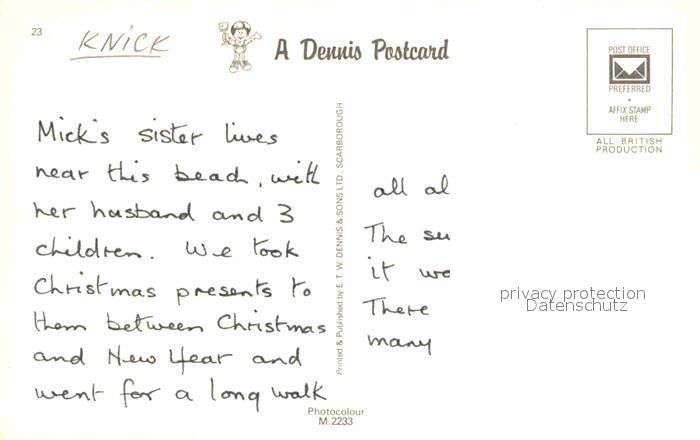 23
KNiCK
A Dennis Postcard
POST OFFICE
PREFERRED
AFFIX STAMP
HERE
ALL BRITISH
PRODUCTION
Mick's sister lives
near this beach, with
her husband and 3
children. We took
Christmas presents to
them between Christmas
and New Year and
went for a long walk
Printed & Published by E. T. W. DENNIS & SONS LTD., SCARBOROUGH
all al
The su
it we
There
many
privacy protection
Datenschutz
Photocolour
M.2233